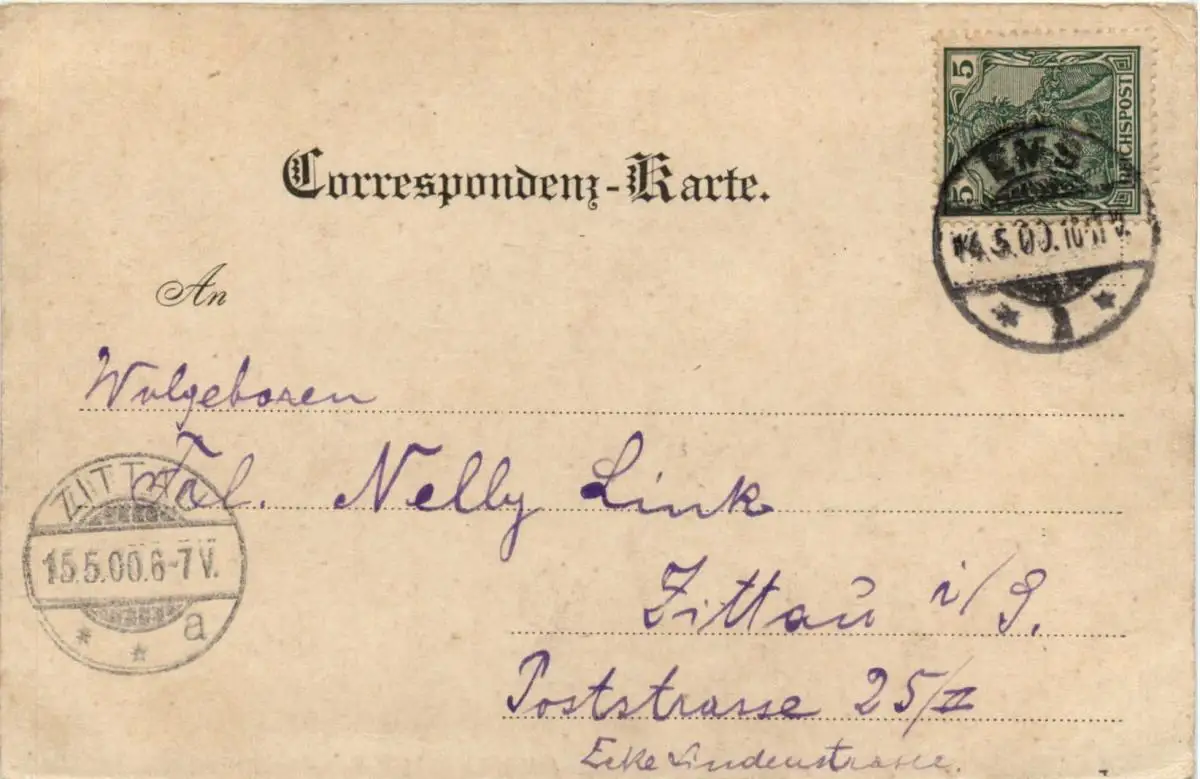 5 5 REICHSPOST
EMS
14.5.00.10-11 V.
a
Correspondenz-Karte.
An
Wolgeboren
Frl. Nelly Link
Zittau i/S.
Poststrasse 25/II
Ecke Lindenstrasse.
ZITTAU
15.5.00.6-7 V.
a